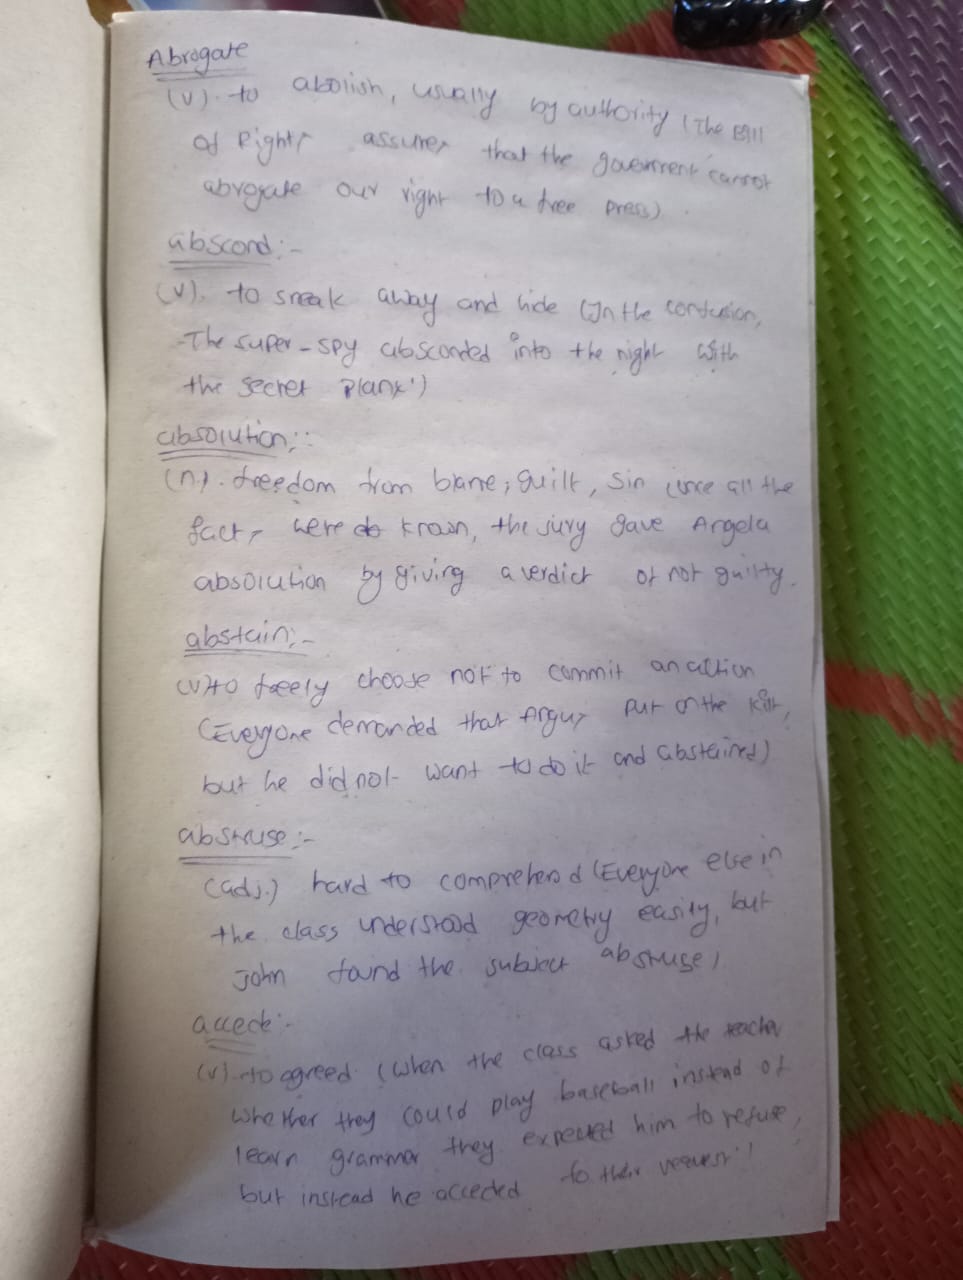 Abrogate
(v). to abolish, usually by authority (The Bill
of Rights assures that the government cannot
abrogate our right to a free press).
abscond:-
(v). to sneak away and hide (In the confusion,
The super-spy absconded into the night with
the secret plans')
absolution;:
(n). freedom from blame, guilt, sin (once all the
facts were known, the jury gave Angela
absolution by giving a verdict of not guilty.
abstain:-
(v)to freely choose not to commit an action
(Everyone demanded that Angus put on the kilt,
but he did not want to do it and abstained)
abstruse:-
(adj.) hard to comprehend (Everyone else in
the class understood geometry easily, but
John found the subject abstruse)
accede:-
(v). to agreed (When the class asked the teacher
whether they could play baseball instead of
learn grammar they expected him to refuse,
but instead he acceded to their request')